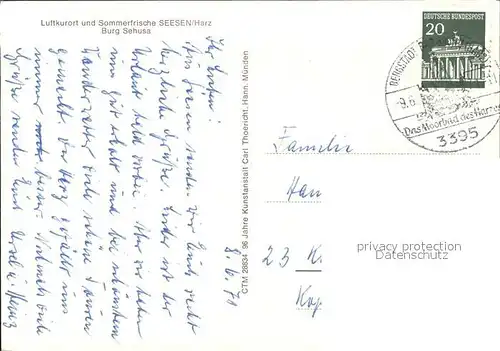 Luftkurort und Sommerfrische SEESEN/Harz
Burg Sehusa
Ihr Lieben!
Aus Seesen senden wir Euch recht
herzliche Grüße. Leider ist der
Urlaub bald vorbei. Aber wir haben
uns gut erholt und bei schönstem
Sonnenwetter viele schöne Touren
gemacht. Der Harz gefällt uns
immer besser. Nochmals viele
Grüße senden Euch Ursel u. Heinz
8.6.71
CTM 28834 96 Jahre Kunstanstalt Carl Thoericht, Hann. Münden
DEUTSCHE BUNDESPOST
20
BERGSTADT
-9.6.
Das Moorbad des Harzes
3395
Familie
Han
23 K
Kap
privacy protection
Datenschutz